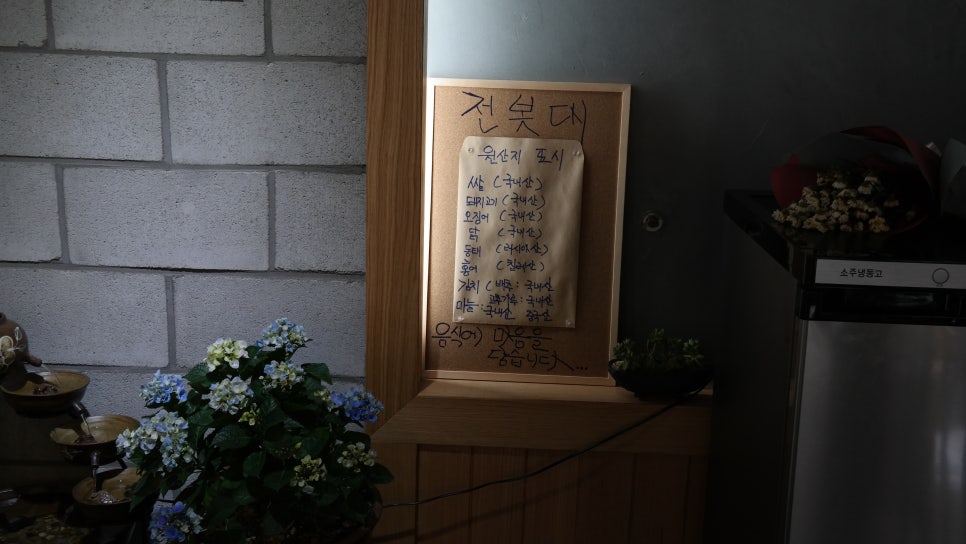 전봇대
원산지 표시
쌀 (국내산)
돼지고기 (국내산)
오징어 (국내산)
닭 (국내산)
동태 (러시아산)
홍어 (칠레산)
김치 ( 배추 : 국내산
고추가루 : 국내산
마늘 : 국내산 중국산
음식에 마음을
담습니다...
소주냉동고